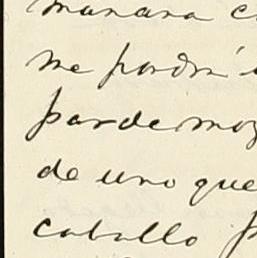 mañana c
me pondré
parde moz
de uno que
caballo p